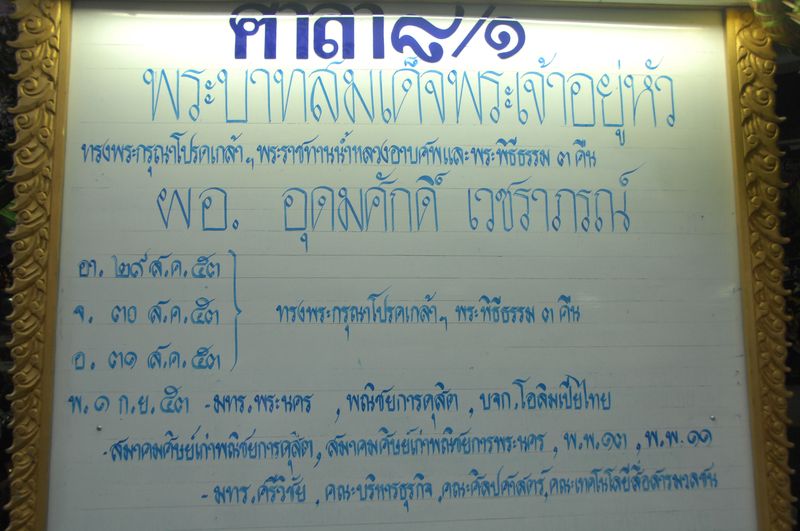 ศาลา๘/๑
พระบาทสมเด็จพระเจ้าอยู่หัว
ทรงพระกรุณาโปรดเกล้าฯ พระราชทานน้ำหลวงอาบศพและพระพิธีธรรม ๓ คืน
ผอ. อุดมศักดิ์ เวชราภรณ์
อา. ๒๙ ส.ค. ๕๓
จ. ๓๐ ส.ค. ๕๓
ทรงพระกรุณาโปรดเกล้าฯ พระพิธีธรรม ๓ คืน
อ. ๓๑ ส.ค. ๕๓
พ. ๑ ก.ย. ๕๓ - มทร.พระนคร , พณิชยการดุสิต , บจก.โอลิมเปียไทย
- สมาคมศิษย์เก่าพณิชยการดุสิต, สมาคมศิษย์เก่าพณิชยการพระนคร , พ.พ.๑๓ , พ.พ.๑๑
- มทร. ศรีวิชัย , คณะบริหารธุรกิจ , คณะศิลปศาสตร์, คณะเทคโนโลยีสื่อสารมวลชน